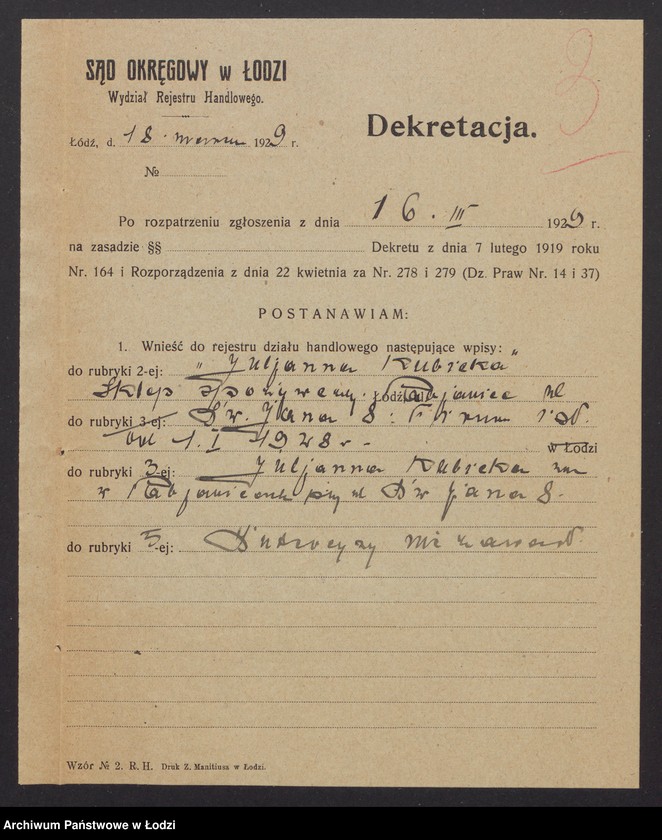 3
SĄD OKRĘGOWY w ŁODZI
Wydział Rejestru Handlowego.
Dekretacja.
Łódź, d. 18. marca 1929 r.
№
Po rozpatrzeniu zgłoszenia z dnia 16. III 1929 r.
na zasadzie §§ Dekretu z dnia 7 lutego 1919 roku
Nr. 164 i Rozporządzenia z dnia 22 kwietnia za Nr. 278 i 279 (Dz. Praw Nr. 14 i 37)
POSTANAWIAM:
1. Wnieść do rejestru działu handlowego następujące wpisy:
do rubryki 2-ej: „Juljanna Kubicka"
Sklep spożywczy. Łódź, ul. Pabjanice ul
do rubryki 3-ej: Św. Jana 8. Firma istn.
od 1. I 1928 r. - w Łodzi
do rubryki 3-ej: Juljanna Kubicka zam
w Pabjanicach przy ul Św Jana 8.
do rubryki 5-ej: Intercyzy nie zawarł.
Wzór № 2. R. H. Druk Z. Manitiusa w Łodzi.
Archiwum Państwowe w Łodzi